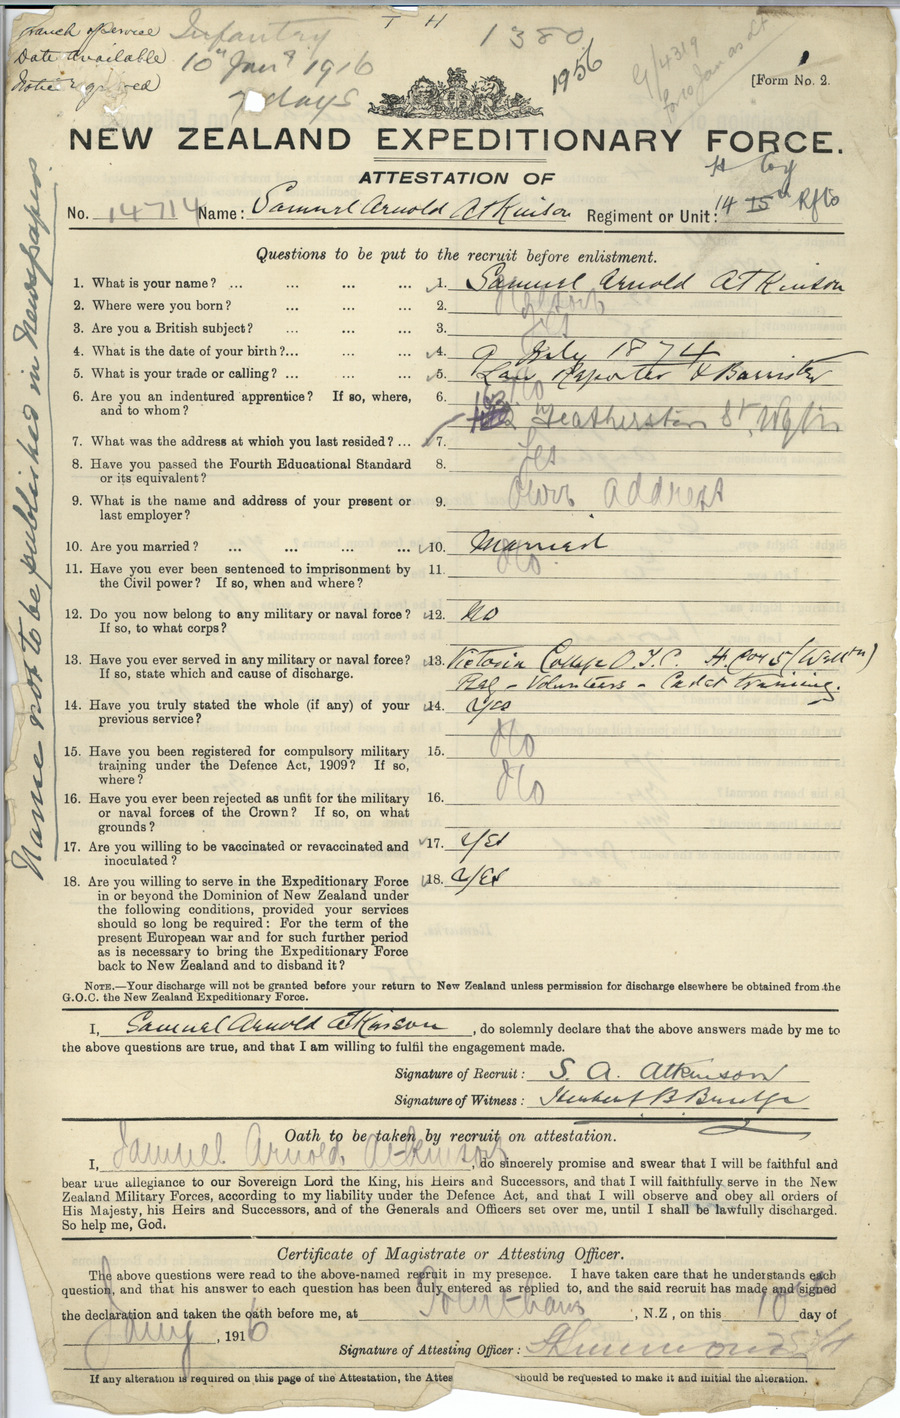 Branch of Service Infantry T H 1380
Date available 10th Jany 1916 1956
Notice required 7 days G/4319
[Form No. 2.
NEW ZEALAND EXPEDITIONARY FORCE.
ATTESTATION OF H Coy
No. 14714 Name: Samuel Arnold Atkinson Regiment or Unit: 14 15th Rfts
Name not to be published in Newspapers.
Questions to be put to the recruit before enlistment.
1. What is your name? ... ... ... ... 1. Samuel Arnold Atkinson
2. Where were you born? ... ... ... 2.
3. Are you a British subject? ... ... ... 3. Yes
4. What is the date of your birth?... ... ... 4. 9 July 1874
5. What is your trade or calling? ... ... ... 5. Law Reporter & Barrister
6. Are you an indentured apprentice? If so, where, 6. No
and to whom?
Featherston St. Wgtn
7. What was the address at which you last resided? ... 7.
8. Have you passed the Fourth Educational Standard 8. Yes
or its equivalent?
9. What is the name and address of your present or 9. Own Address
last employer?
10. Are you married? ... ... ... ... 10. Married
11. Have you ever been sentenced to imprisonment by 11. No
the Civil power? If so, when and where?
12. Do you now belong to any military or naval force? 12. No
If so, to what corps?
13. Have you ever served in any military or naval force? 13. Victoria College O.T.C. (Wellтn)
If so, state which and cause of discharge. Volunteers - Cadet training.
14. Have you truly stated the whole (if any) of your 14. Yes
previous service?
15. Have you been registered for compulsory military 15. No
training under the Defence Act, 1909? If so,
where?
16. Have you ever been rejected as unfit for the military 16. No
or naval forces of the Crown? If so, on what
grounds?
17. Are you willing to be vaccinated or revaccinated and 17. Yes
inoculated?
18. Are you willing to serve in the Expeditionary Force 18. Yes
in or beyond the Dominion of New Zealand under
the following conditions, provided your services
should so long be required: For the term of the
present European war and for such further period
as is necessary to bring the Expeditionary Force
back to New Zealand and to disband it?
NOTE.—Your discharge will not be granted before your return to New Zealand unless permission for discharge elsewhere be obtained from the
G.O.C. the New Zealand Expeditionary Force.
I, Samuel Arnold Atkinson, do solemnly declare that the above answers made by me to
the above questions are true, and that I am willing to fulfil the engagement made.
Signature of Recruit: S. A. Atkinson
Signature of Witness: Herbert B
Oath to be taken by recruit on attestation.
I, Samuel Arnold Atkinson, do sincerely promise and swear that I will be faithful and
bear true allegiance to our Sovereign Lord the King, his Heirs and Successors, and that I will faithfully serve in the New
Zealand Military Forces, according to my liability under the Defence Act, and that I will observe and obey all orders of
His Majesty, his Heirs and Successors, and of the Generals and Officers set over me, until I shall be lawfully discharged.
So help me, God.
Certificate of Magistrate or Attesting Officer.
The above questions were read to the above-named recruit in my presence. I have taken care that he understands each
question, and that his answer to each question has been duly entered as replied to, and the said recruit has made and signed
the declaration and taken the oath before me, at , N.Z, on this 10th day of
Jany, 1916
Signature of Attesting Officer:
If any alteration is required on this page of the Attestation, the Attes should be requested to make it and initial the alteration.